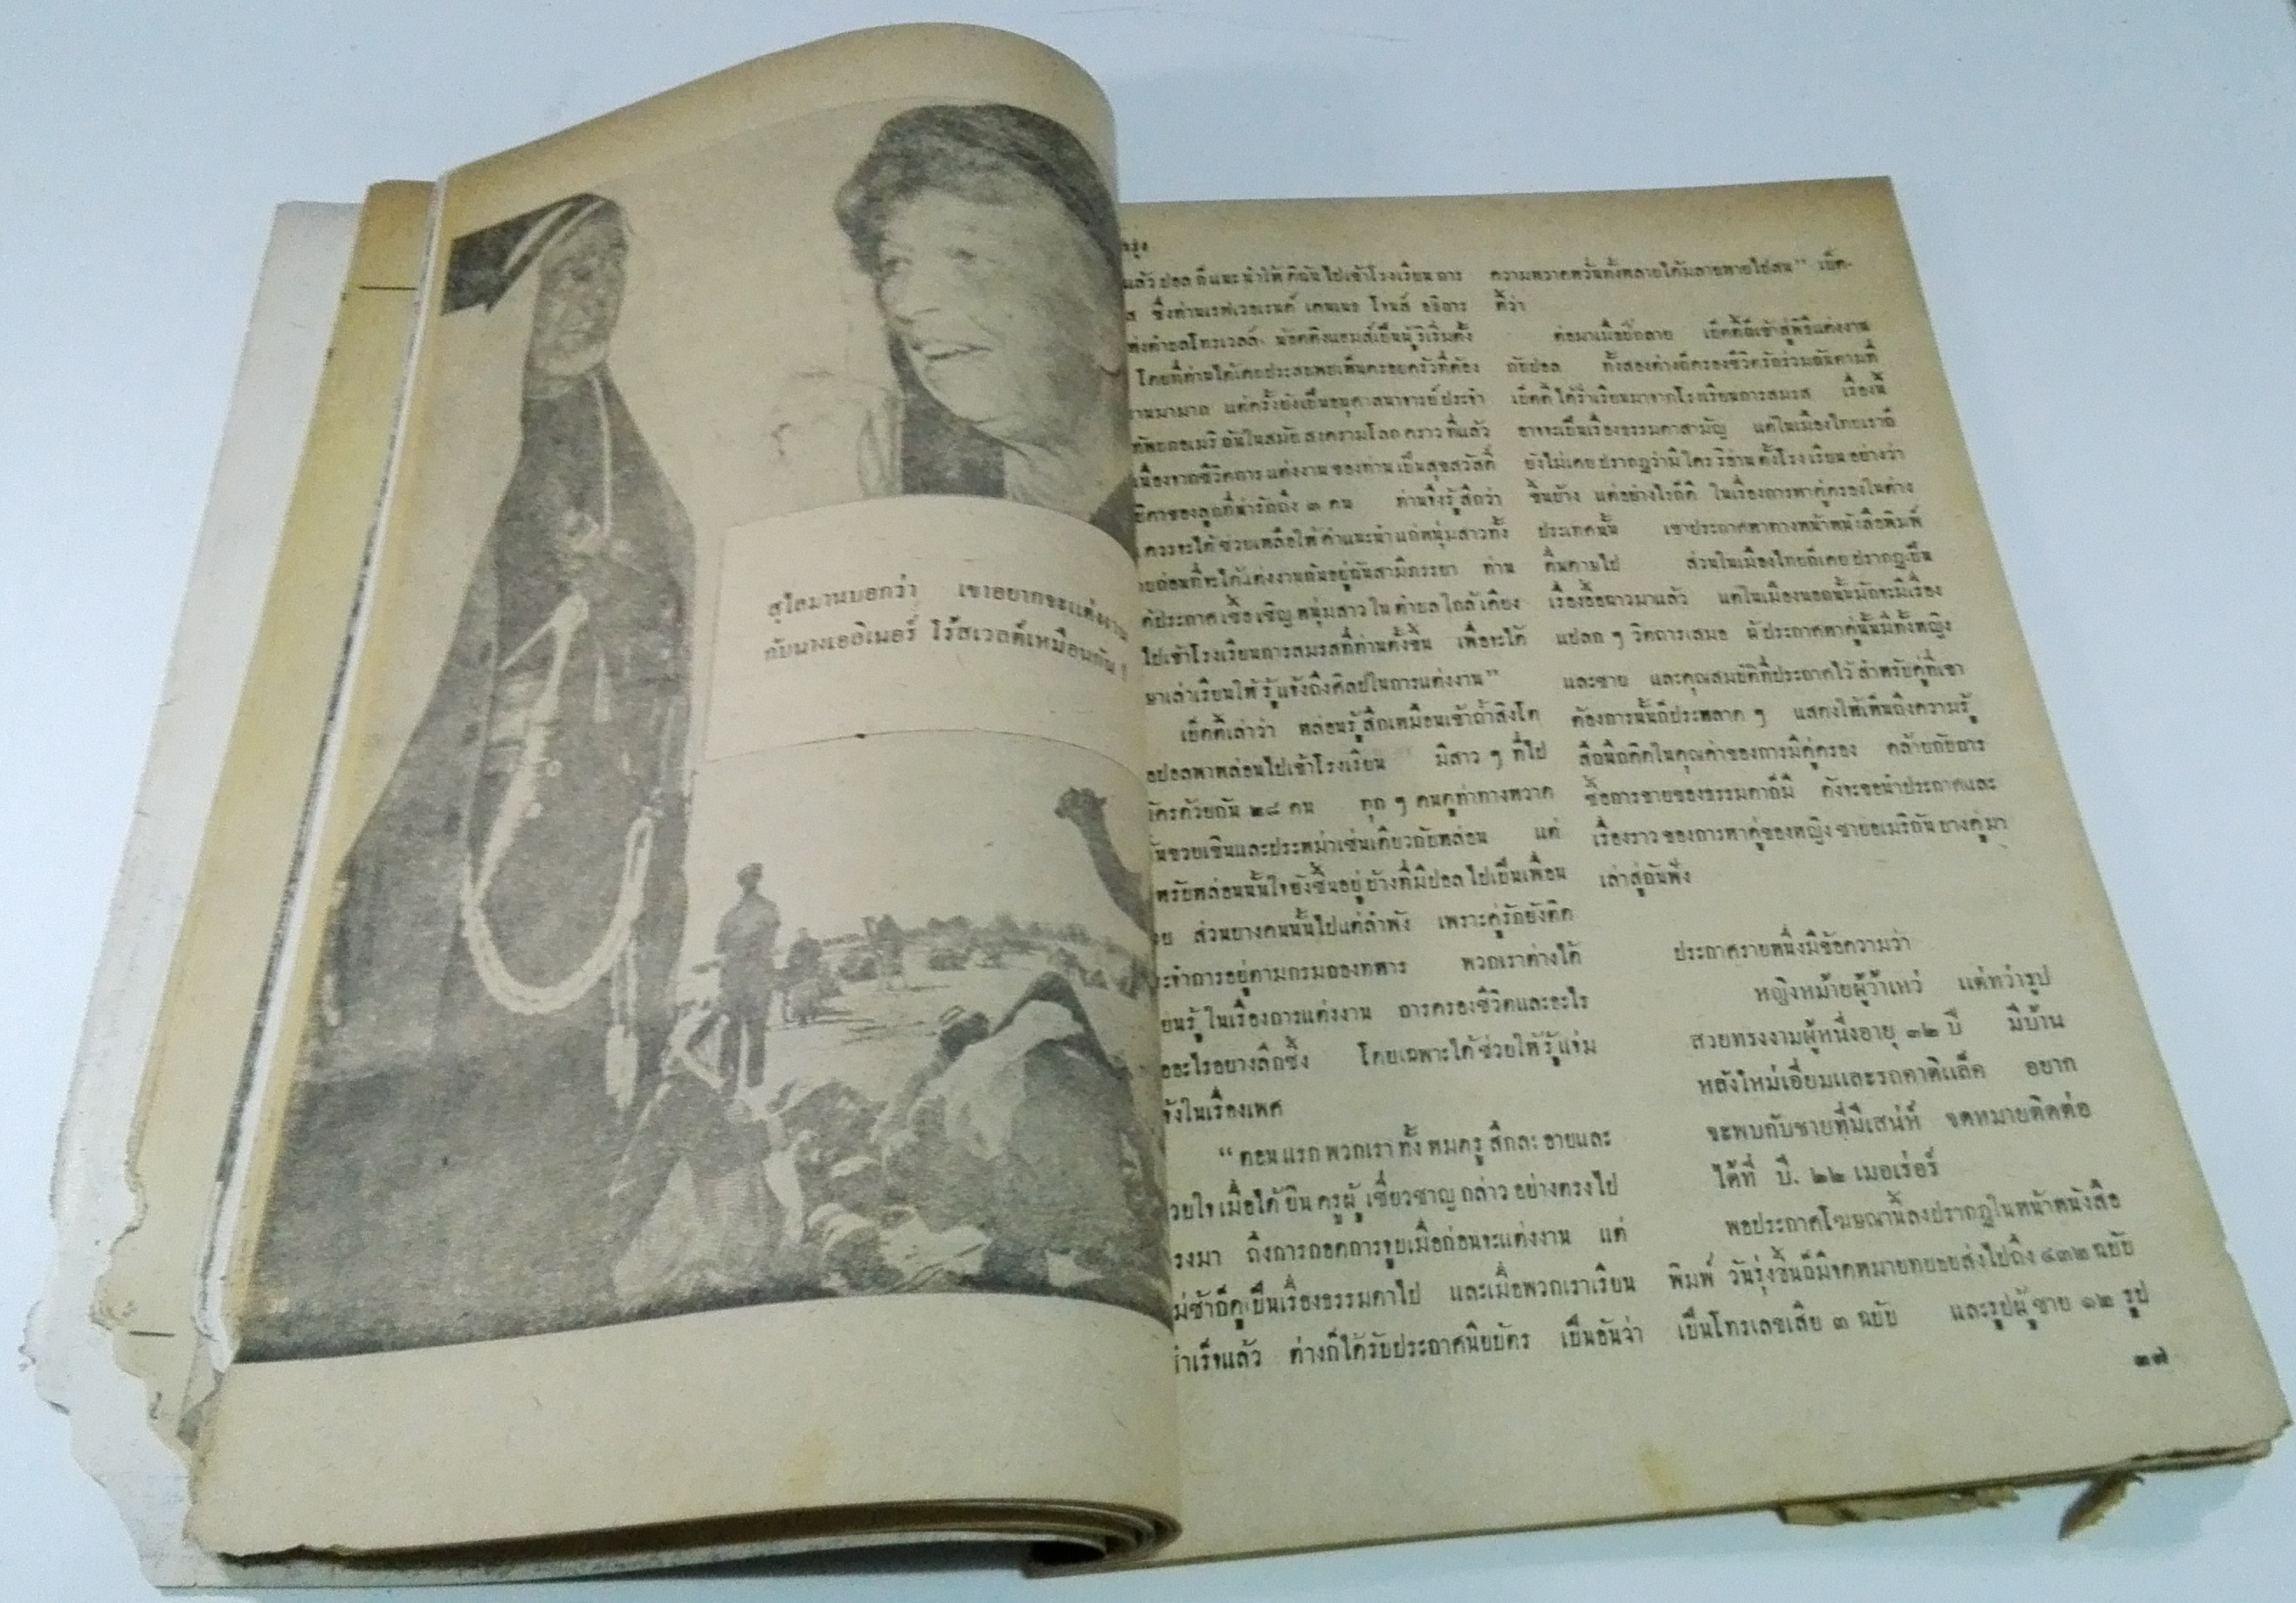 สุไลมานบอกว่า เขาอยากจะแต่งงาน
กับนางเอลิเนอร์ โร้สเวลต์เหมือนกัน !
แล้ว ปอล ก็แนะนำให้ ดิฉันไปเข้าโรงเรียน การ
ส ซึ่งท่านเรฟเวอเรนด์ เคนเนธ โจนส์ อธิการ
แห่งตำบลโทรเวลล์ น้อตติงแฮมส์เป็นผู้ริเริ่มตั้ง
โดยที่ท่านได้เคยประสพพบเห็นครอบครัวที่ต้อง
านมามาก แต่ครั้งยังเป็นอนุศาสนาจารย์ประจำ
ทัพบกอเมริกันในสมัย สงครามโลก คราวที่แล้ว
เนื่องจากชีวิตการ แต่งงาน ของท่านเป็นสุขสวัสดิ์
บิดาของลูกที่น่ารักถึง ๓ คน ท่านจึงรู้สึกว่า
ควรจะได้ช่วยเหลือให้คำแนะนำแก่หนุ่มสาวทั้ง
ายก่อนที่จะได้แต่งงานกันอยู่กันสามีภรรยา ท่าน
ด้ประกาศเชื้อเชิญหนุ่มสาวในตำบลใกล้เคียง
ไปเข้าโรงเรียนการสมรสที่ท่านตั้งขึ้น เพื่อจะได้
ษาเล่าเรียนให้รู้แจ้งถึงศิลปในการแต่งงาน”
เบ็ตตี้เล่าว่า หล่อนรู้สึกเหมือนเข้าถ้ำสิงโต
อปอลพาหล่อนไปเข้าโรงเรียน มีสาว ๆ ที่ไป
ัครด้วยกัน ๒๘ คน ทุก ๆ คนดูท่าทางหวาด
ั่นขวยเขินและประหม่าเช่นเดียวกับหล่อน แต่
หรับหล่อนนั้นใจยังชื้นอยู่บ้างที่มีปอลไปเป็นเพื่อน
วย ส่วนบางคนนั้นไปแต่ลำพัง เพราะคู่รักยังติด
ะจำการอยู่ตามกรมกองทหาร พวกเราต่างได้
ยนรู้ในเรื่องการแต่งงาน การครองชีวิตและอะไร
ออะไรอย่างลึกซึ้ง โดยเฉพาะได้ช่วยให้รู้แจ่ม
จ้งในเรื่องเพศ
“ ตอนแรกพวกเราทั้งหมดรู้สึกละอายและ
วยใจเมื่อได้ยินครูผู้เชี่ยวชาญกล่าวอย่างตรงไป
รงมา ถึงการกอดการจูบเมื่อก่อนจะแต่งงาน แต่
ม่ช้าก็ดูเป็นเรื่องธรรมดาไป และเมื่อพวกเราเรียน
ำเร็จแล้ว ต่างก็ได้รับประกาศนิยบัตร เป็นอันว่า
ความหวาดหวั่นทั้งหลายได้มลายหายไปสิ้น” เบ็ต-
ตี้ว่า
ต่อมาเมื่อปีกลาย เบ็ตตี้ก็เข้าสู่พิธีแต่งงาน
กับปอล ทั้งสองต่างก็ครองชีวิตรักร่วมกันตามที่
เบ็ตตี้ได้ร่ำเรียนมาจากโรงเรียนการสมรส เรื่องนี้
อาจจะเป็นเรื่องธรรมดาสามัญ แต่ในเมืองไทยเราก็
ยังไม่เคยปรากฏว่ามีใครริอ่านตั้งโรงเรียนอย่างว่า
ขึ้นบ้าง แต่อย่างไรก็ดี ในเรื่องการหาคู่ครองในต่าง
ประเทศนั้น เขาประกาศหาทางหน้าหนังสือพิมพ์
ดื่นดาษไป ส่วนในเมืองไทยก็เคยปรากฏเป็น
เรื่องอื้อฉาวมาแล้ว แต่ในเมืองนอกนั้นมักจะมีเรื่อง
แปลก ๆ วิตถารเสมอ ผู้ประกาศหาคู่นั้นมีทั้งหญิง
และชาย และคุณสมบัติที่ประกาศไว้สำหรับคู่ที่เขา
ต้องการนั้นก็ประหลาด ๆ แสดงให้เห็นถึงความรู้
สึกนึกคิดในคุณค่าของการมีคู่ครอง คล้ายกับการ
ซื้อการขายของธรรมดาก็มี ดังจะขอนำประกาศและ
เรื่องราวของการหาคู่ของหญิงชายอเมริกันบางคู่มา
เล่าสู่กันฟัง
ประกาศรายหนึ่งมีข้อความว่า
หญิงหม้ายผู้ว้าเหว่ แต่ทว่ารูป
สวยทรงงามผู้หนึ่งอายุ ๓๒ ปี มีบ้าน
หลังใหม่เอี่ยมและรถคาดิแล็ค อยาก
จะพบกับชายที่มีเสน่ห์ จดหมายติดต่อ
ได้ที่ บี. ๒๒ เมอเร่อร์
พอประกาศโฆษณานี้ลงปรากฏในหน้าหนังสือ
พิมพ์ วันรุ่งขึ้นก็มีจดหมายทยอยส่งไปถึง ๔๓๒ ฉบับ
เป็นโทรเลขเสีย ๓ ฉบับ และรูปผู้ชาย ๑๒ รูป
๓๗